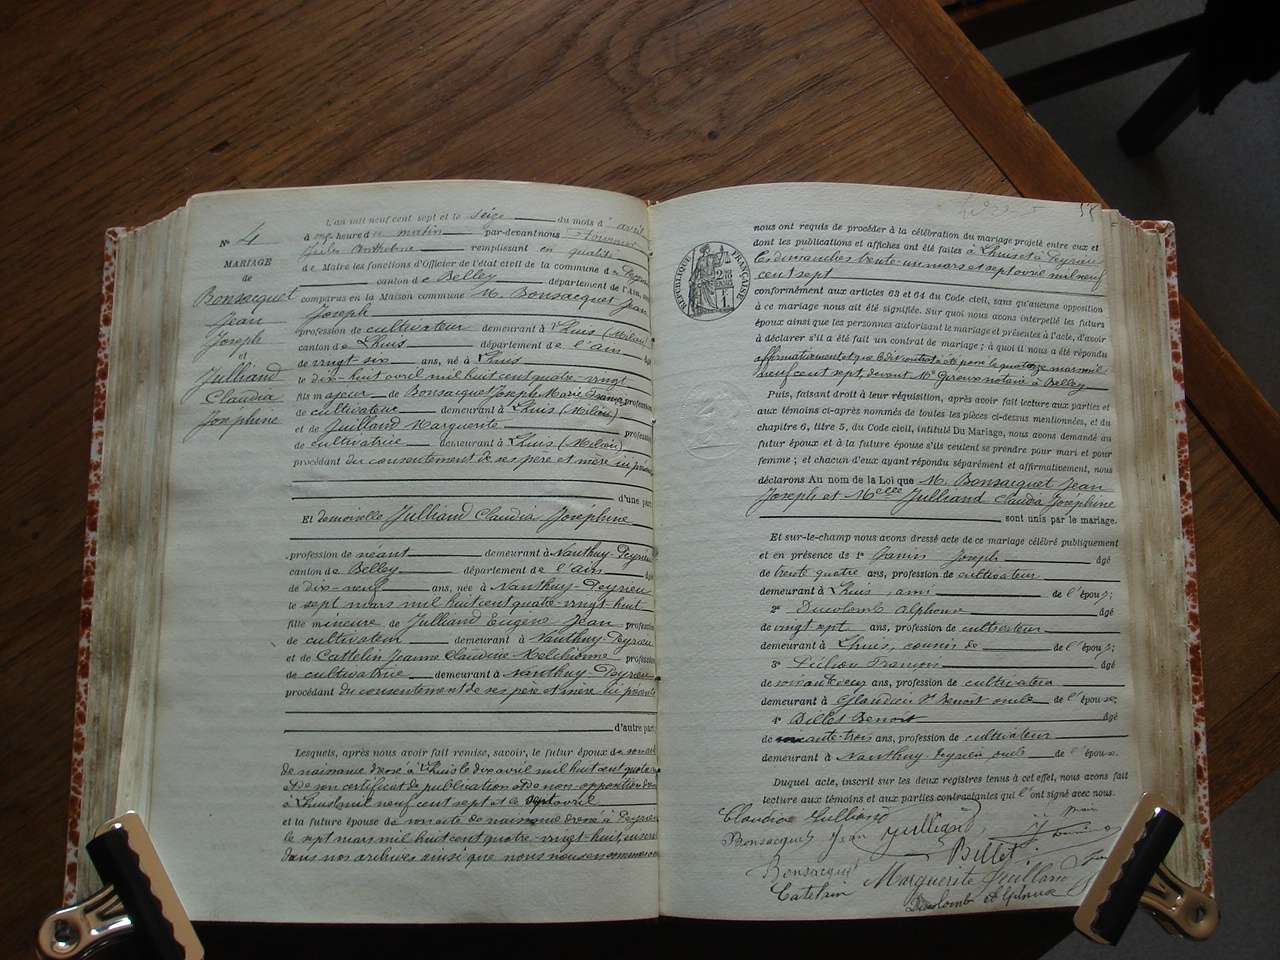 N° 4
MARIAGE
de
Bonsacquet
Jean
Joseph
et
Julliand
Claudia
Joséphine
L'an mil neuf cent sept et le seize du mois d'avril
à onze heures du matin par-devant nous
Jules Anthelme remplissant en qualité
de Maire les fonctions d'Officier de l'état civil de la commune de Peyrieu
canton de Belley département de l'Ain,
comparus en la Maison commune M. Bonsacquet Jean
Joseph
profession de cultivateur demeurant à Lhuis (Millieu)
canton de Lhuis département de l'Ain âgé
de vingt-six ans, né à Lhuis
le dix-huit avril mil huit cent quatre-vingt
fils majeur de Bonsacquet Joseph Marie François profession
de cultivateur demeurant à Lhuis
et de Juilland Marguerite profession
de cultivatrice demeurant à Lhuis
procédant du consentement de ses père et mère ici présents
d'une part
Et demoiselle Julliand Claudia Joséphine
profession de néant demeurant à Nanthuy-Peyrieu
canton de Belley département de l'Ain âgé
de dix-neuf ans, née à Nanthuy-Peyrieu
le sept mars mil huit cent quatre-vingt-huit
fille mineure de Julliand Eugène Jean profession
de cultivateur demeurant à Nanthuy-Peyrieu
et de Cattelin Jeanne Claudine Melchionne profession
de cultivatrice demeurant à Nanthuy Peyrieu
procédant du consentement de ses père et mère ici présents
d'autre part
Lesquels, après nous avoir fait remise, savoir, le futur époux de son acte
de naissance dressé à Lhuis le dix avril mil huit cent quatre
et de son certificat de publication et de non opposition
à Lhuis mil neuf cent sept et le sept avril
et la future épouse de son acte de naissance dressé à Peyrieu
le sept mars mil huit cent quatre-vingt-huit,
dans nos archives ainsi que nous nous en sommes
57
RÉPUBLIQUE FRANÇAISE
nous ont requis de procéder à la célébration du mariage projeté entre eux et
dont les publications et affiches ont été faites à Lhuis et à Peyrieu
les dimanches trente-un mars et sept avril mil neuf
cent sept
conformément aux articles 63 et 64 du Code civil, sans qu'aucune opposition
à ce mariage nous ait été signifiée. Sur quoi nous avons interpellé les futurs
époux ainsi que les personnes autorisant le mariage et présentes à l'acte, d'avoir
à déclarer s'il a été fait un contrat de mariage; à quoi il nous a été répondu
affirmativement et que le dit contrat a été passé le quatorze mars mil
neuf cent sept, devant Me Giroux notaire à Belley
Puis, faisant droit à leur réquisition, après avoir fait lecture aux parties et
aux témoins ci-après nommés de toutes les pièces ci-dessus mentionnées, et du
chapitre 6, titre 5, du Code civil, intitulé Du Mariage, nous avons demandé au
futur époux et à la future épouse s'ils veulent se prendre pour mari et pour
femme; et chacun d'eux ayant répondu séparément et affirmativement, nous
déclarons Au nom de la Loi que M. Bonsacquet Jean
Joseph et Melle Julliand Claudia Joséphine
sont unis par le mariage.
Et sur-le-champ nous avons dressé acte de ce mariage célébré publiquement
et en présence de 1° Joseph âgé
de trente quatre ans, profession de cultivateur
demeurant à Lhuis, ami de l'époux;
2° Ducolomb Alphonse âgé
de vingt sept ans, profession de cultivateur
demeurant à Lhuis, cousin de de l'époux;
3° François âgé
de soixante deux ans, profession de cultivateur
demeurant à Glandieu St Benoit oncle de l'épouse;
4° Billet Benoit âgé
de soixante-trois ans, profession de cultivateur
demeurant à Nanthuy Peyrieu oncle de l'épouse.
Duquel acte, inscrit sur les deux registres tenus à cet effet, nous avons fait
lecture aux témoins et aux parties contractantes qui l'ont signé avec nous.
Claudia Julliand
Bonsacquet Jean Julliand
Billet
Bonsacquet
Catelin Marguerite Juilland
Ducolomb Alphonse